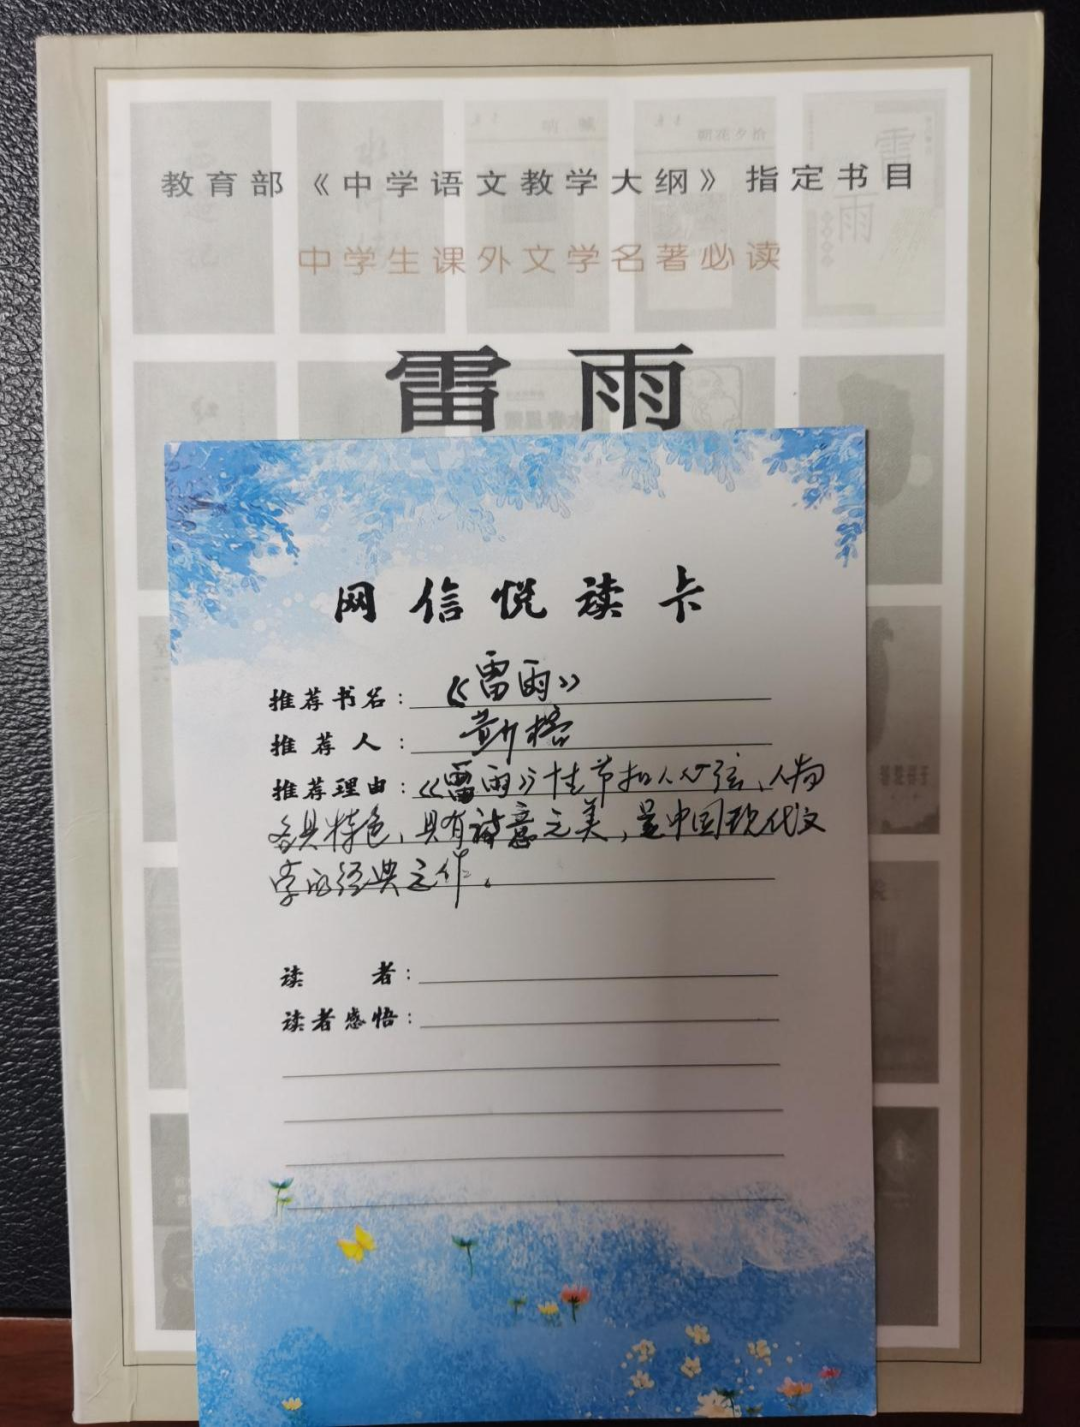 教育部《中学语文教学大纲》指定书目
中学生课外文学名著必读
雷雨
网信悦读卡
推荐书名：《雷雨》
推荐人：
推荐理由：《雷雨》情节扣人心弦、人物
各具特色，具有诗意之美，是中国现代文
学的经典之作。
读者：
读者感悟：